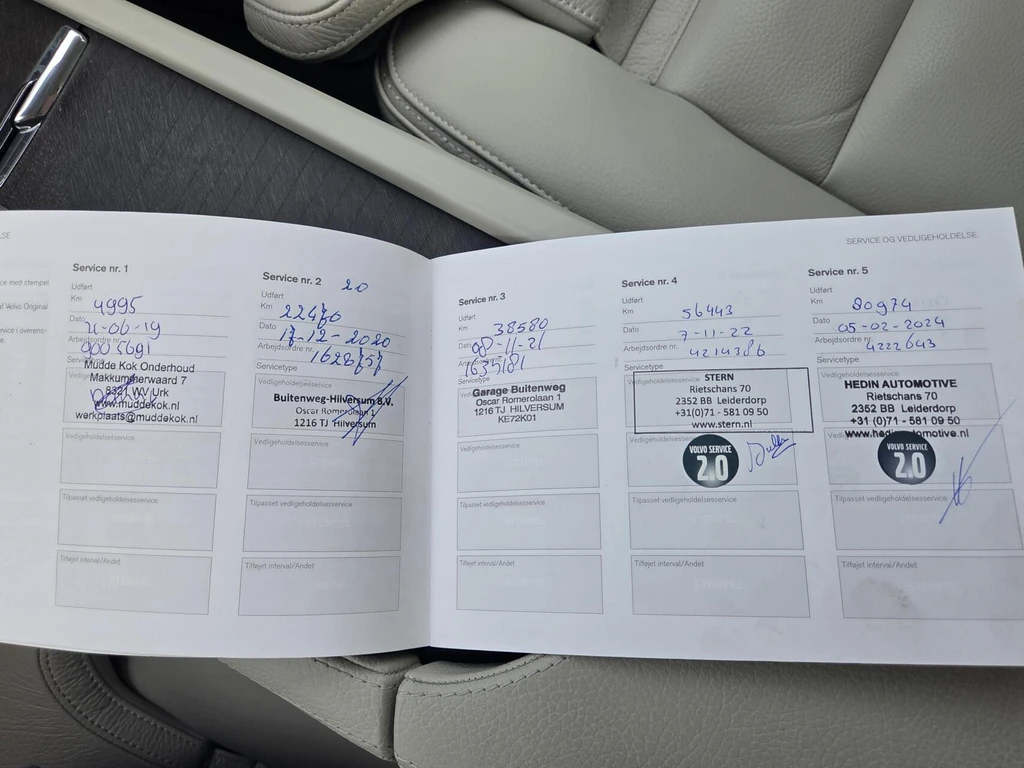 LSE
ce med stempel
al Volvo Original
ervice i overens-
Service nr. 1
Udført
Km 4995
Dato 21-06-19
Arbejdsordre nr. 9005691
Servicetype
Mudde Kok Onderhoud
Makkummerwaard 7
8321 WV Urk
www.muddekok.nl
werkplaats@muddekok.nl
Vedligeholdelsesservice
Vedligeholdelsesservice
Tilpasset vedligeholdelsesservice
STEMPEL
Tilføjet interval/Andet
STEMPEL
Service nr. 2
20
Udført
Km 22476
Dato 17-12-2020
Arbejdsordre nr. 1628757
Servicetype
Vedligeholdelsesservice
Buitenweg-Hilversum B.V.
Oscar Romerolaan 1
1216 TJ Hilversum
Vedligeholdelsesservice
Tilpasset vedligeholdelsesservice
STEMPEL
Tilføjet interval/Andet
STEMPEL
SERVICE OG VEDLIGEHOLDELSE
Service nr. 3
Udført
Km 38580
Dato 08-11-21
Arbejdsordre nr. 1635181
Servicetype
Vedligeholdelsesservice
Garage Buitenweg
Oscar Romerolaan 1
1216 TJ HILVERSUM
KE72K01
Vedligeholdelsesservice
Tilpasset vedligeholdelsesservice
Tilføjet interval/Andet
STEMPEL
Service nr. 4
Udført
Km 56443
Dato 7-11-22
Arbejdsordre nr. 4214386
Servicetype
Vedligeholdelsesservice
STERN
Rietschans 70
2352 BB Leiderdorp
+31(0)71 - 581 09 50
www.stern.nl
Vedligeholdelsesservice
VOLVO SERVICE
2.0
Tilpasset vedligeholdelsesservice
STEMPEL
Tilføjet interval/Andet
STEMPEL
Service nr. 5
Udført
Km 80974
Dato 05-02-2024
Arbejdsordre nr. 4222643
Servicetype
Vedligeholdelsesservice
HEDIN AUTOMOTIVE
Rietschans 70
2352 BB Leiderdorp
+31 (0)71 - 581 09 50
www.hedinautomotive.nl
Vedligeholdelsesservice
VOLVO SERVICE
2.0
Tilpasset vedligeholdelsesservice
STEMPEL
Tilføjet interval/Andet
STEMPEL